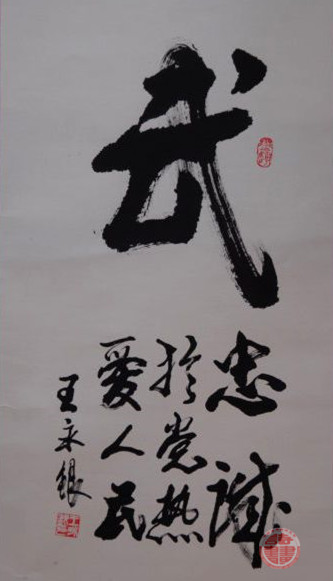 武
忠誠
於党热
愛人民
王永银